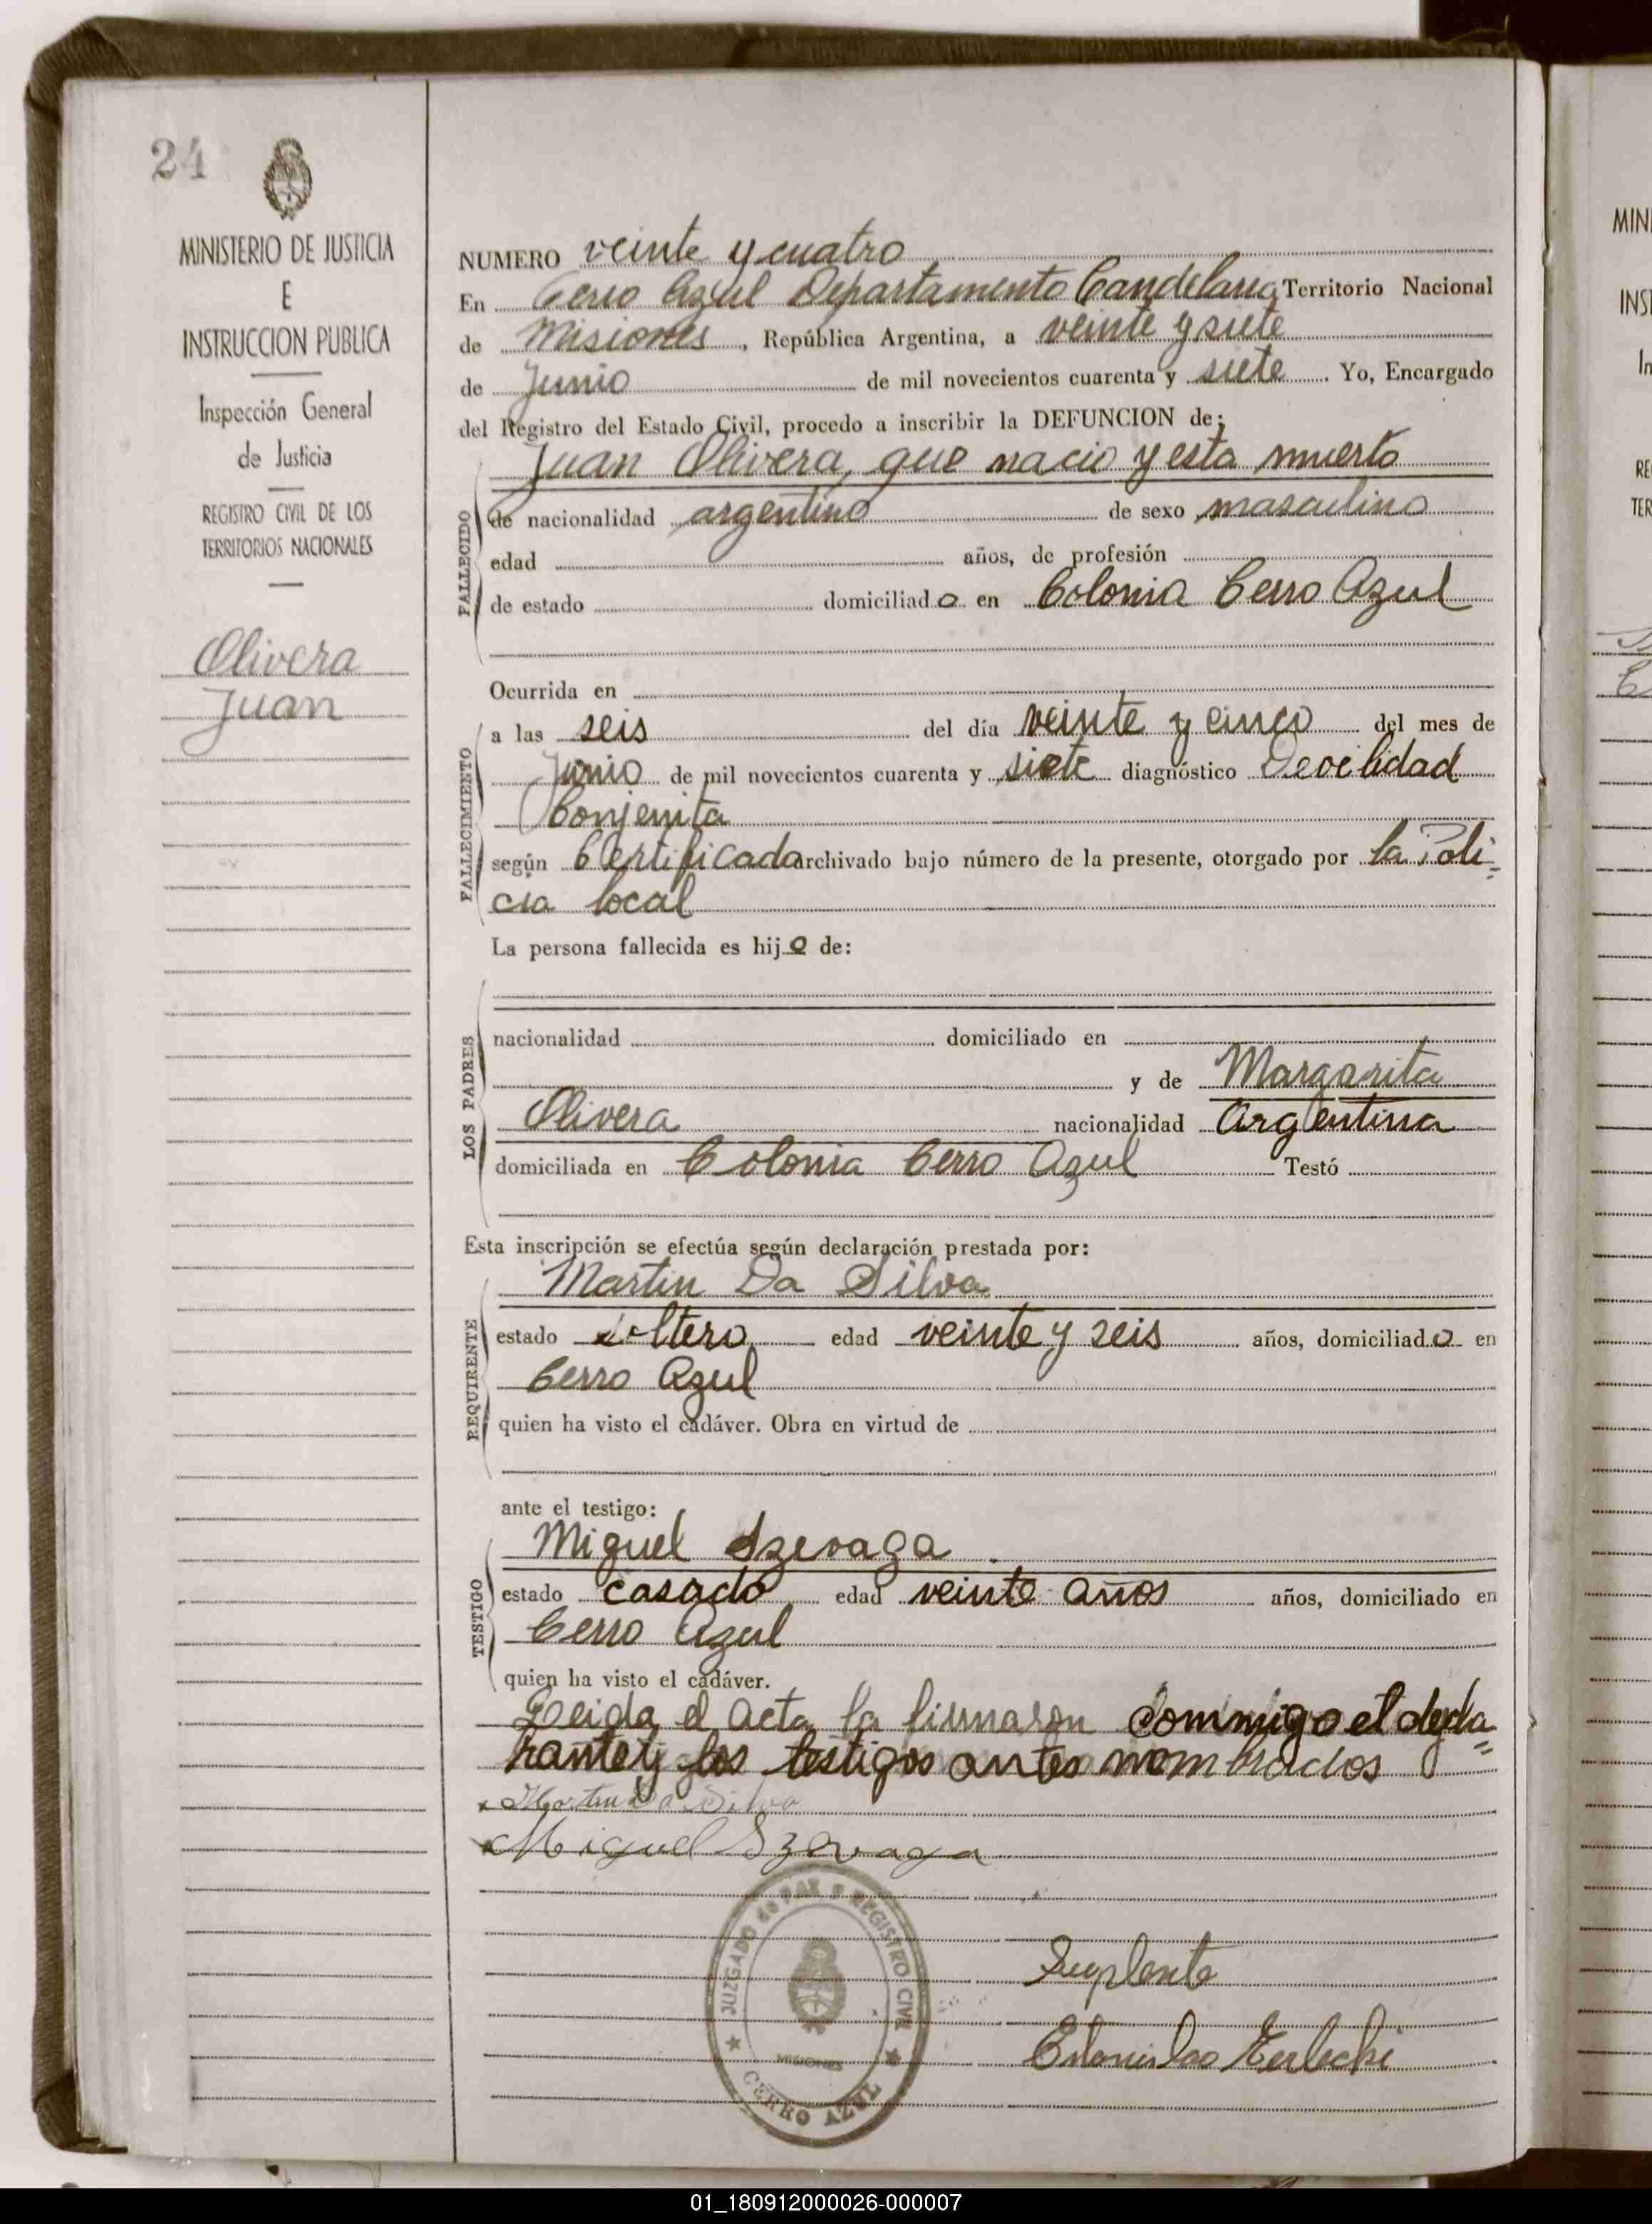 24
MINISTERIO DE JUSTICIA
E
INSTRUCCION PUBLICA
Inspección General
de Justicia
REGISTRO CIVIL DE LOS
TERRITORIOS NACIONALES
Olivera
Juan
NUMERO veinte y cuatro
En Cerro Azul Departamento Candelaria Territorio Nacional
de Misiones, República Argentina, a veinte y siete
de Junio de mil novecientos cuarenta y siete. Yo, Encargado
del Registro del Estado Civil, procedo a inscribir la DEFUNCION de:
Juan Olivera, que nacio y esta muerto
FALLECIDO
de nacionalidad argentino de sexo masculino
edad años, de profesión
de estado domiciliado en Colonia Cerro Azul
Ocurrida en
FALLECIMIENTO
a las seis del día veinte y cinco del mes de
Junio de mil novecientos cuarenta y siete diagnóstico Devilidad
Conjenita
según Certificado archivado bajo número de la presente, otorgado por la Poli=
cia local
La persona fallecida es hijo de:
LOS PADRES
nacionalidad domiciliado en
y de Margarita
Olivera nacionalidad Argentina
domiciliada en Colonia Cerro Azul Testó
Esta inscripción se efectúa según declaración prestada por:
Martin Da Silva
REQUIRENTE
estado soltero edad veinte y seis años, domiciliado en
Cerro Azul
quien ha visto el cadáver. Obra en virtud de
ante el testigo:
Miguel Szevaga.
TESTIGO
estado casado edad veinte años años, domiciliado en
Cerro Azul
quien ha visto el cadáver.
Leida el acta la firmaron commigo el decla=
rante y los testigos antes nombrados
x Martin Da Silva
x Miguel Szevaga
JUZGADO de PAZ y REGISTRO CIVIL
MISIONES
CERRO AZUL
Suplente
Estanislao
MINI
INST
In
RE
TER
01_180912000026-000007